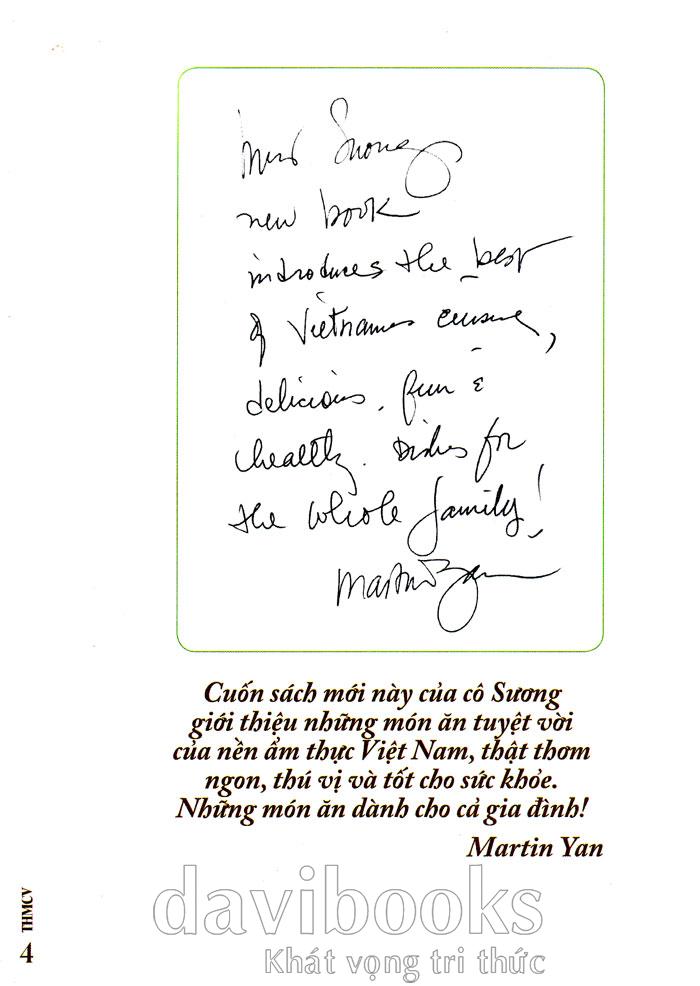 Miss Suong
new book
introduces the best
of Vietnames cuisine,
delicious, fun &
healthy. Dishes for
the whole family!
Martin Yan
Cuốn sách mới này của cô Sương
giới thiệu những món ăn tuyệt vời
của nền ẩm thực Việt Nam, thật thơm
ngon, thú vị và tốt cho sức khỏe.
Những món ăn dành cho cả gia đình!
Martin Yan
THMCV
4
davibooks
Khát vọng tri thức